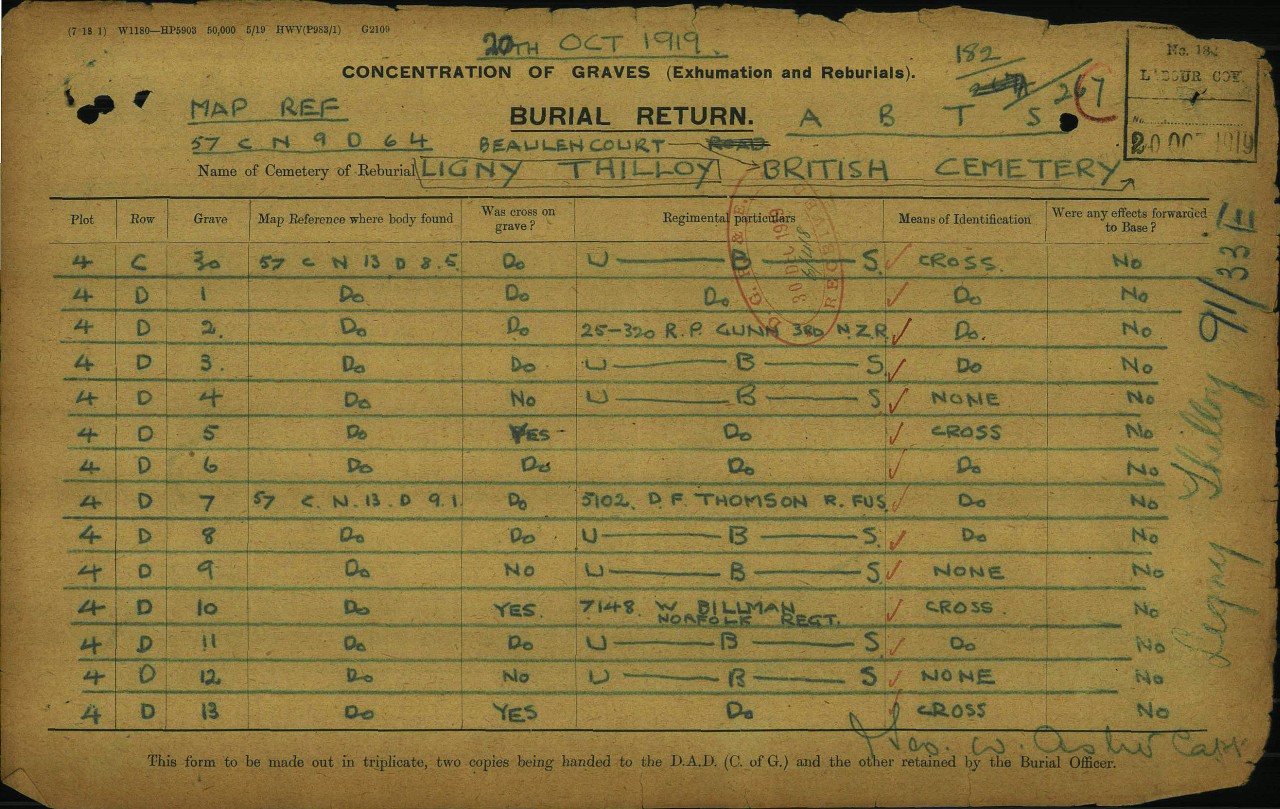 (7 18 1) W1180—HP5903 50,000 5/19 HWV(P983/1) G2109
20TH OCT 1919.
CONCENTRATION OF GRAVES (Exhumation and Reburials).
182
267
No. 182
LABOUR COY.
No.
20 OCT 1919
MAP REF
BURIAL RETURN.
A B T S.
57 C N 9 D 6 4
BEAULENCOURT ROAD
Name of Cemetery of Reburial LIGNY THILLOY BRITISH CEMETERY
Plot Row Grave Map Reference where body found Was cross on grave? Regimental particulars Means of Identification Were any effects forwarded to Base?
4 C 30 57 C N 13 D 8.5. Do U — B — S. CROSS. No
4 D 1 Do Do Do Do No
4 D 2. Do Do 25-320 R.P. GUNN 3RD N.Z.R. Do. No
4 D 3. Do Do U — B — S. Do No
4 D 4 Do No U — B — S. NONE No
4 D 5 Do YES Do CROSS No
4 D 6 Do Do Do Do No
4 D 7 57 C. N. 13. D 9.1. Do 5102. D.F. THOMSON R. FUS. Do No
4 D 8 Do Do U — B — S. Do No
4 D 9 Do No U — B — S. NONE No
4 D 10 Do YES. 7148. W BILLMAN NORFOLK REGT. CROSS. No
4 D 11 Do Do U — B — S. Do No
4 D 12 Do No U — B — S NONE No
4 D 13 Do YES Do CROSS No
30 DEC 1919
Ligny Thilloy 91/33E
Geo. W. Asher Capt
This form to be made out in triplicate, two copies being handed to the D.A.D. (C. of G.) and the other retained by the Burial Officer.